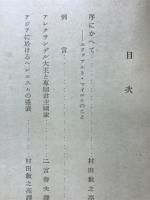 目次
序にかへて………村田數之亮
――エドゥアルト・マイエルのこと
例言
アレクサンデル大王と專制君主國家………二宮

譯
アジアに於けるヘレニズムの盛衰………村田數之亮譯